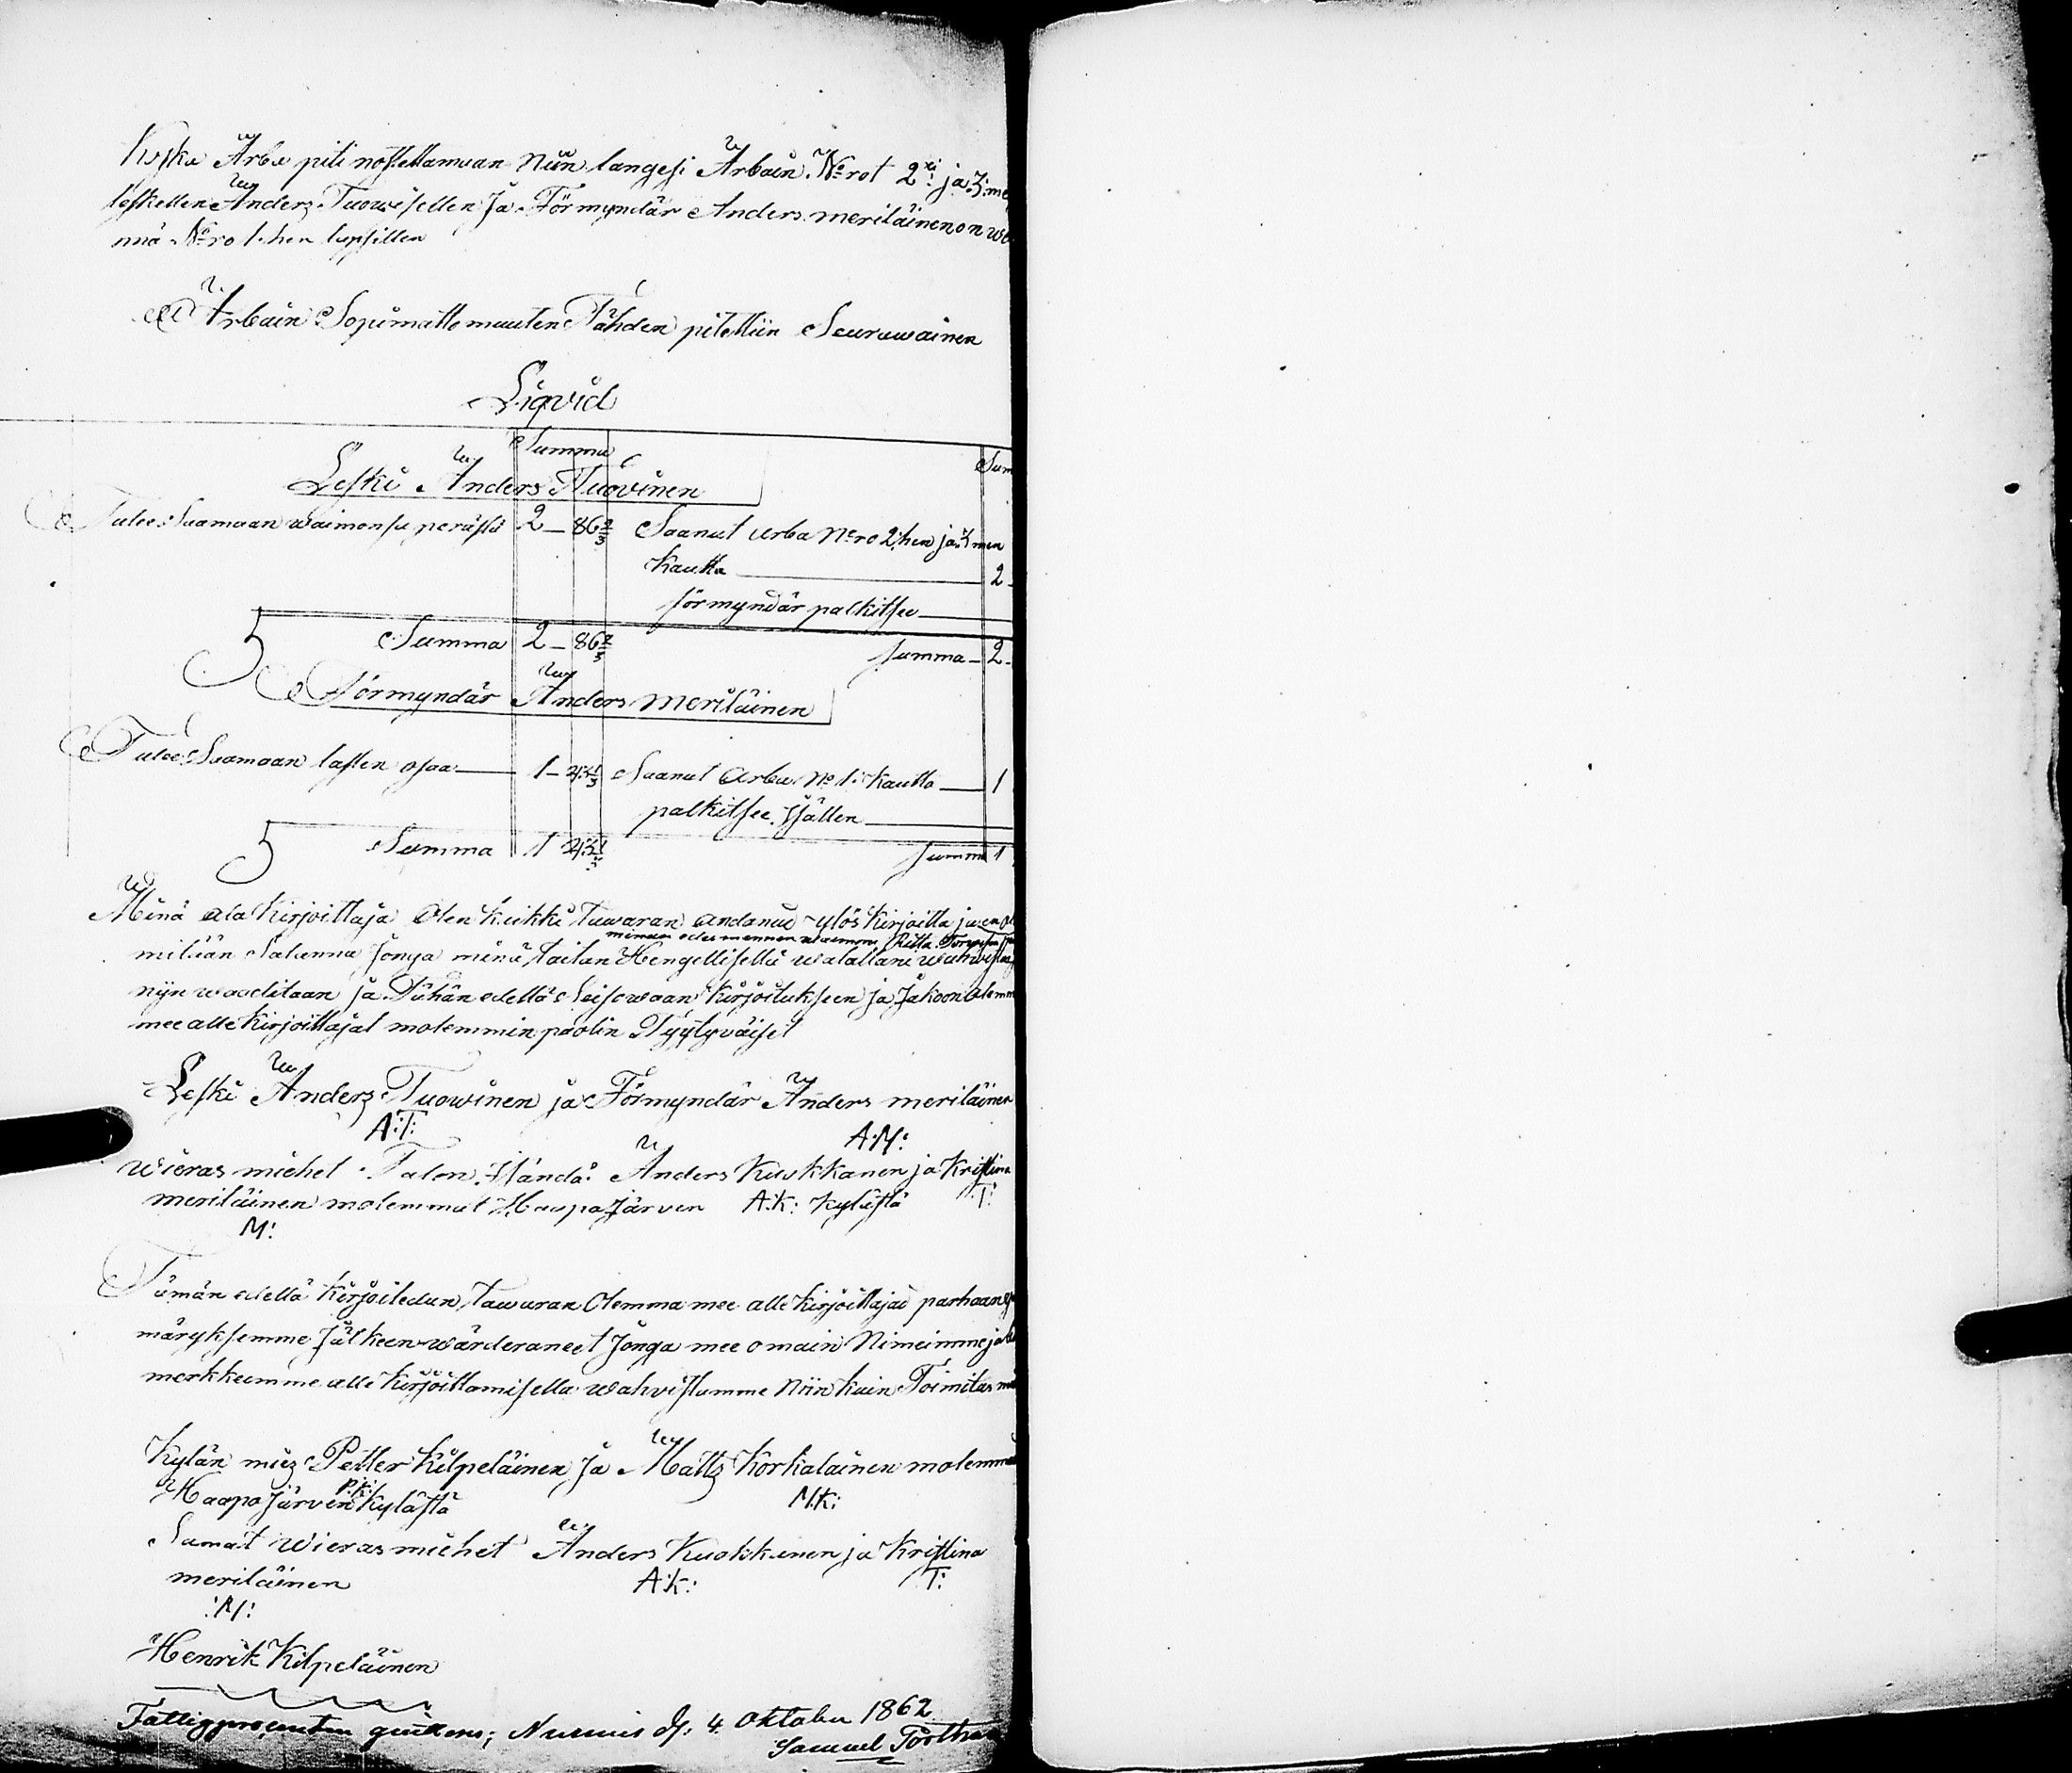 Koska Arba piti nostettamaan Niin langesi Arbain N:rot 2:xi ja 3:me
leskellen Anders Tuowisellen Ja Förmyndär Anders meriläinen on we
nnä N:ro 1:hen lapsillen
Arbain Sopimattomuuten Tähden pitettiin Seurawainen
Liqvid
Summa Sum
Leski Anders Tuovinen
Tulee Saamaan waimonsa perästä 2 – 86 2/3 Saanut Arba N:ro 2:hen ja 3:men
Kautta 2
förmyndär palkitsee
Summa 2 – 86 2/3 Summa – 2
Förmyndär Anders meriläinen
Tulee Saamaan lasten osaa 1 – 43 1/3 Saanut Arba N:o 1: Kautta 1
palkitsee Isällen
Summa 1 43 1/3 Summa 1
Minä ala Kirjoittaja Olen Kaikki Tawaran andanud ylös Kirjoitta ja en ol
minun edes mennen waimoni Riitta
mitään Salanna Jonga minä taitan Hengellisellä walallani wahwista
niin waaditaan ja Tähän edellä Seisowaan Kirjoitukseen ja Jakoon olemm
mee alle Kirjoittajat molemmin puolin Tyytyväiset
Leski Anders Tuowinen ja Förmyndär Anders meriläinen
A:T: A:M:
wieras miehet Talon Isändä Anders Kuokkanen ja Kristina
meriläinen molemmat Haapajärven A:K: Kylästä T:
M:
Tämän edellä Kirjoitedun Tawaran Olemma mee alle Kirjoittajad parhaan
märyksemme Jälkeen wärderaneet Jonga mee omain Nimeimme ja
merkkeimme alle Kirjoittamisella wahvistamme Niin kuin Toimitus
Kylän miez Petter Kilpeläinen Ja Matts Korkalainen molemma
P:K: M:K:
Haapajärven Kylästä
Samat Wieras miehet Anders Kuokkanen ja Kristina
meriläinen A:K: T:
:M:
Henrik Kilpeläinen
Fattigprocenten Nurmis d. 4 Oktober 1862
Samuel